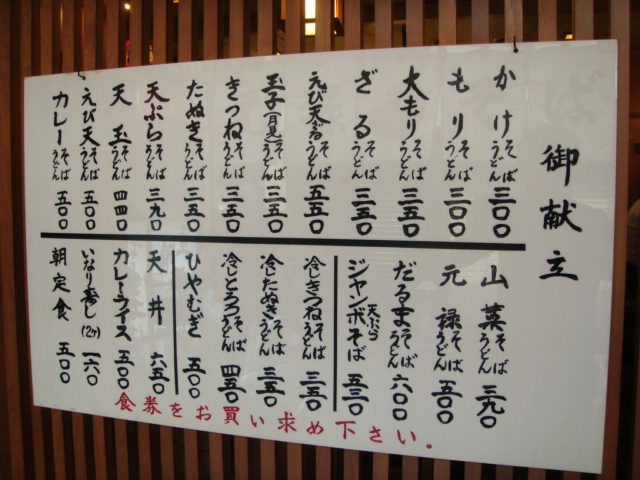 御献立
かけそばうどん 三〇〇
もりそばうどん 三〇〇
大もりそばうどん 三五〇
ざるそばうどん 三五〇
えび天ざるそばうどん 五五〇
玉子(月見)そばうどん 三五〇
きつねそばうどん 三五〇
たぬきそばうどん 三五〇
天ぷらそばうどん 三九〇
天玉そばうどん 四四〇
えび天そばうどん 五〇〇
カレーそばうどん 五〇〇
山菜そばうどん 三九〇
元禄そばうどん 五〇〇
だるまそばうどん 六〇〇
天ぷらジャンボそば 五三〇
冷しきつねそばうどん 三五〇
冷したぬきそばうどん 三五〇
冷しとろろそばうどん 四五〇
ひやむぎ 五〇〇
天丼 六五〇
カレーライス 五〇〇
いなり寿し(2ヶ) 一六〇
朝定食 五〇〇
食券をお買い求め下さい。